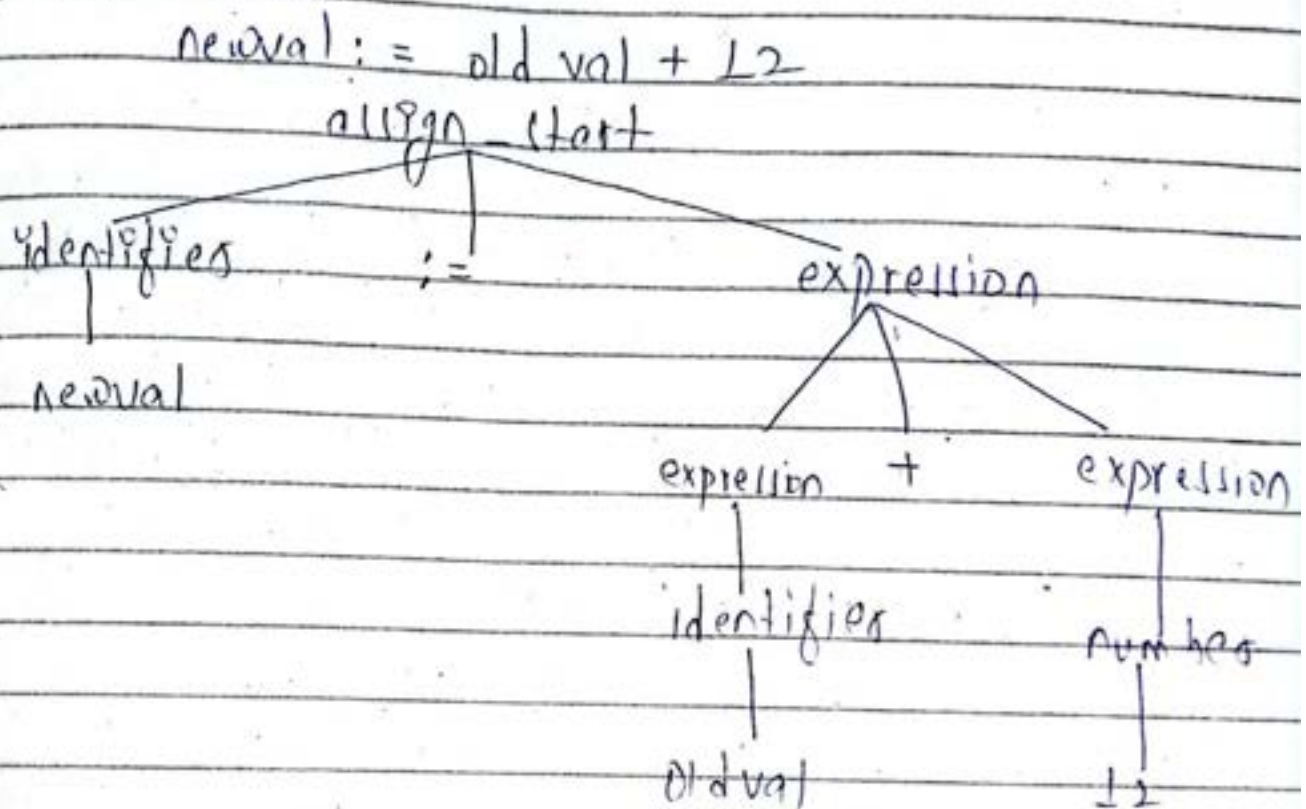 newval := oldval + 12
assign_start
identifier := expression
newval
expression + expression
identifier number
oldval 12